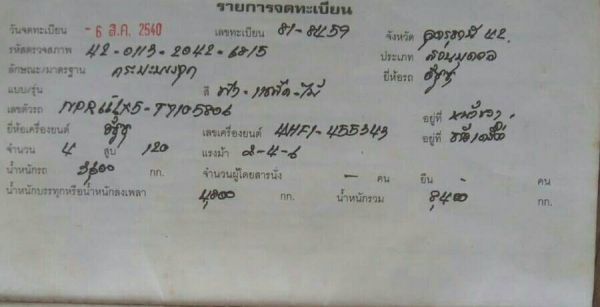 รายการจดทะเบียน
วันจดทะเบียน - 6 ส.ค. 2540 เลขทะเบียน 81-8459 จังหวัด อุดรธานี 42
รหัสตรวจสภาพ 42-0113-2042-6815 ประเภท ส่วนบุคคล
ลักษณะ/มาตรฐาน กระบะบรรทุก ยี่ห้อรถ อีซูซุ
แบบ/รุ่น สี ฟ้า-
เลขตัวรถ อยู่ที่
ยี่ห้อเครื่องยนต์ อีซูซุ เลขเครื่องยนต์ 4HF1-455343 อยู่ที่
จำนวน 4 สูบ 120 แรงม้า 2-4-6
น้ำหนักรถ 3600 กก. จำนวนผู้โดยสารนั่ง - คน ยืน - คน
น้ำหนักบรรทุกหรือน้ำหนักลงเพลา 4800 กก. น้ำหนักรวม 8400 กก.